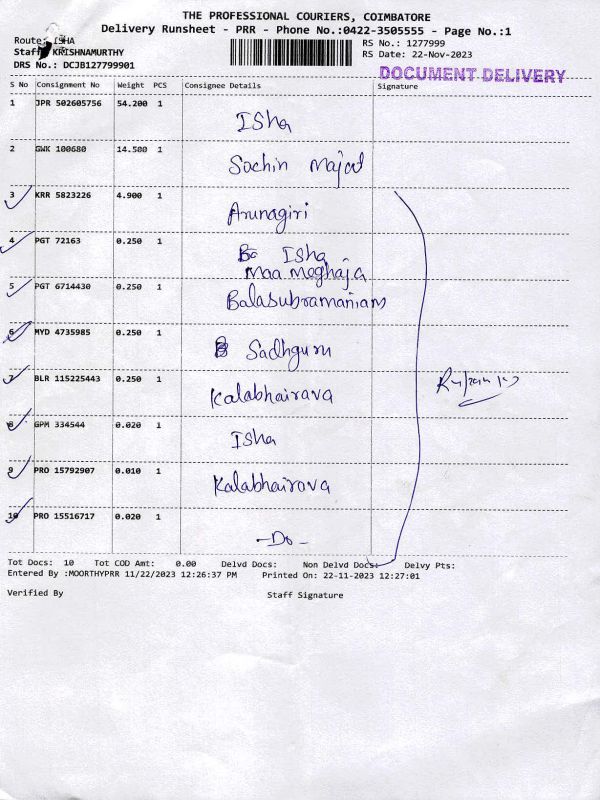 THE PROFESSIONAL COURIERS, COIMBATORE
Delivery Runsheet - PRR - Phone No.:0422-3505555 - Page No.:1
Route: ISHA
Staff: KRISHNAMURTHY
DRS No.: DCJB127799901
RS No.: 1277999
RS Date: 22-Nov-2023
DOCUMENT DELIVERY
S No Consignment No Weight PCS Consignee Details Signature
1 JPR 502605756 54.200 1 Isha
2 GWK 100680 14.500 1 Sachin Majal
3 KRR 5823226 4.900 1 Arunagiri
4 PGT 72163 0.250 1 Isha
Maa Meghaja
5 PGT 6714430 0.250 1 Balasubramaniam
6 MYD 4735985 0.250 1 Sadhguru
7 BLR 115225443 0.250 1 Kalabhairava
8 GPM 334544 0.020 1 Isha
9 PRO 15792907 0.010 1 Kalabhairava
10 PRO 15516717 0.020 1 -Do-
Tot Docs: 10 Tot COD Amt: 0.00 Delvd Docs: Non Delvd Docs: Delvy Pts:
Entered By :MOORTHYPRR 11/22/2023 12:26:37 PM Printed On: 22-11-2023 12:27:01
Verified By Staff Signature